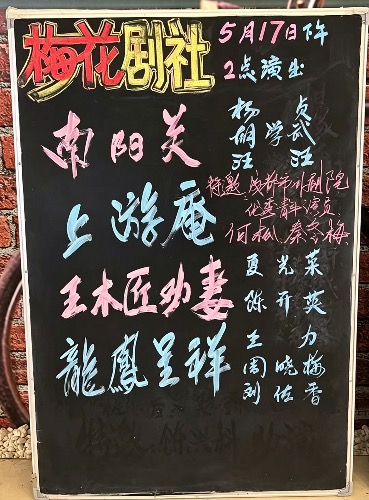 梅花剧社
5月17日下午
2点演出
南阳关
杨 贞
胡学武
汪 汪
上游庵
特邀 成都市川剧院
优秀青年演员
何松 秦冬梅
王木匠劝妻
夏光菜
陈开英
龍鳳呈祥
王 力
周晓梅
刘佐香